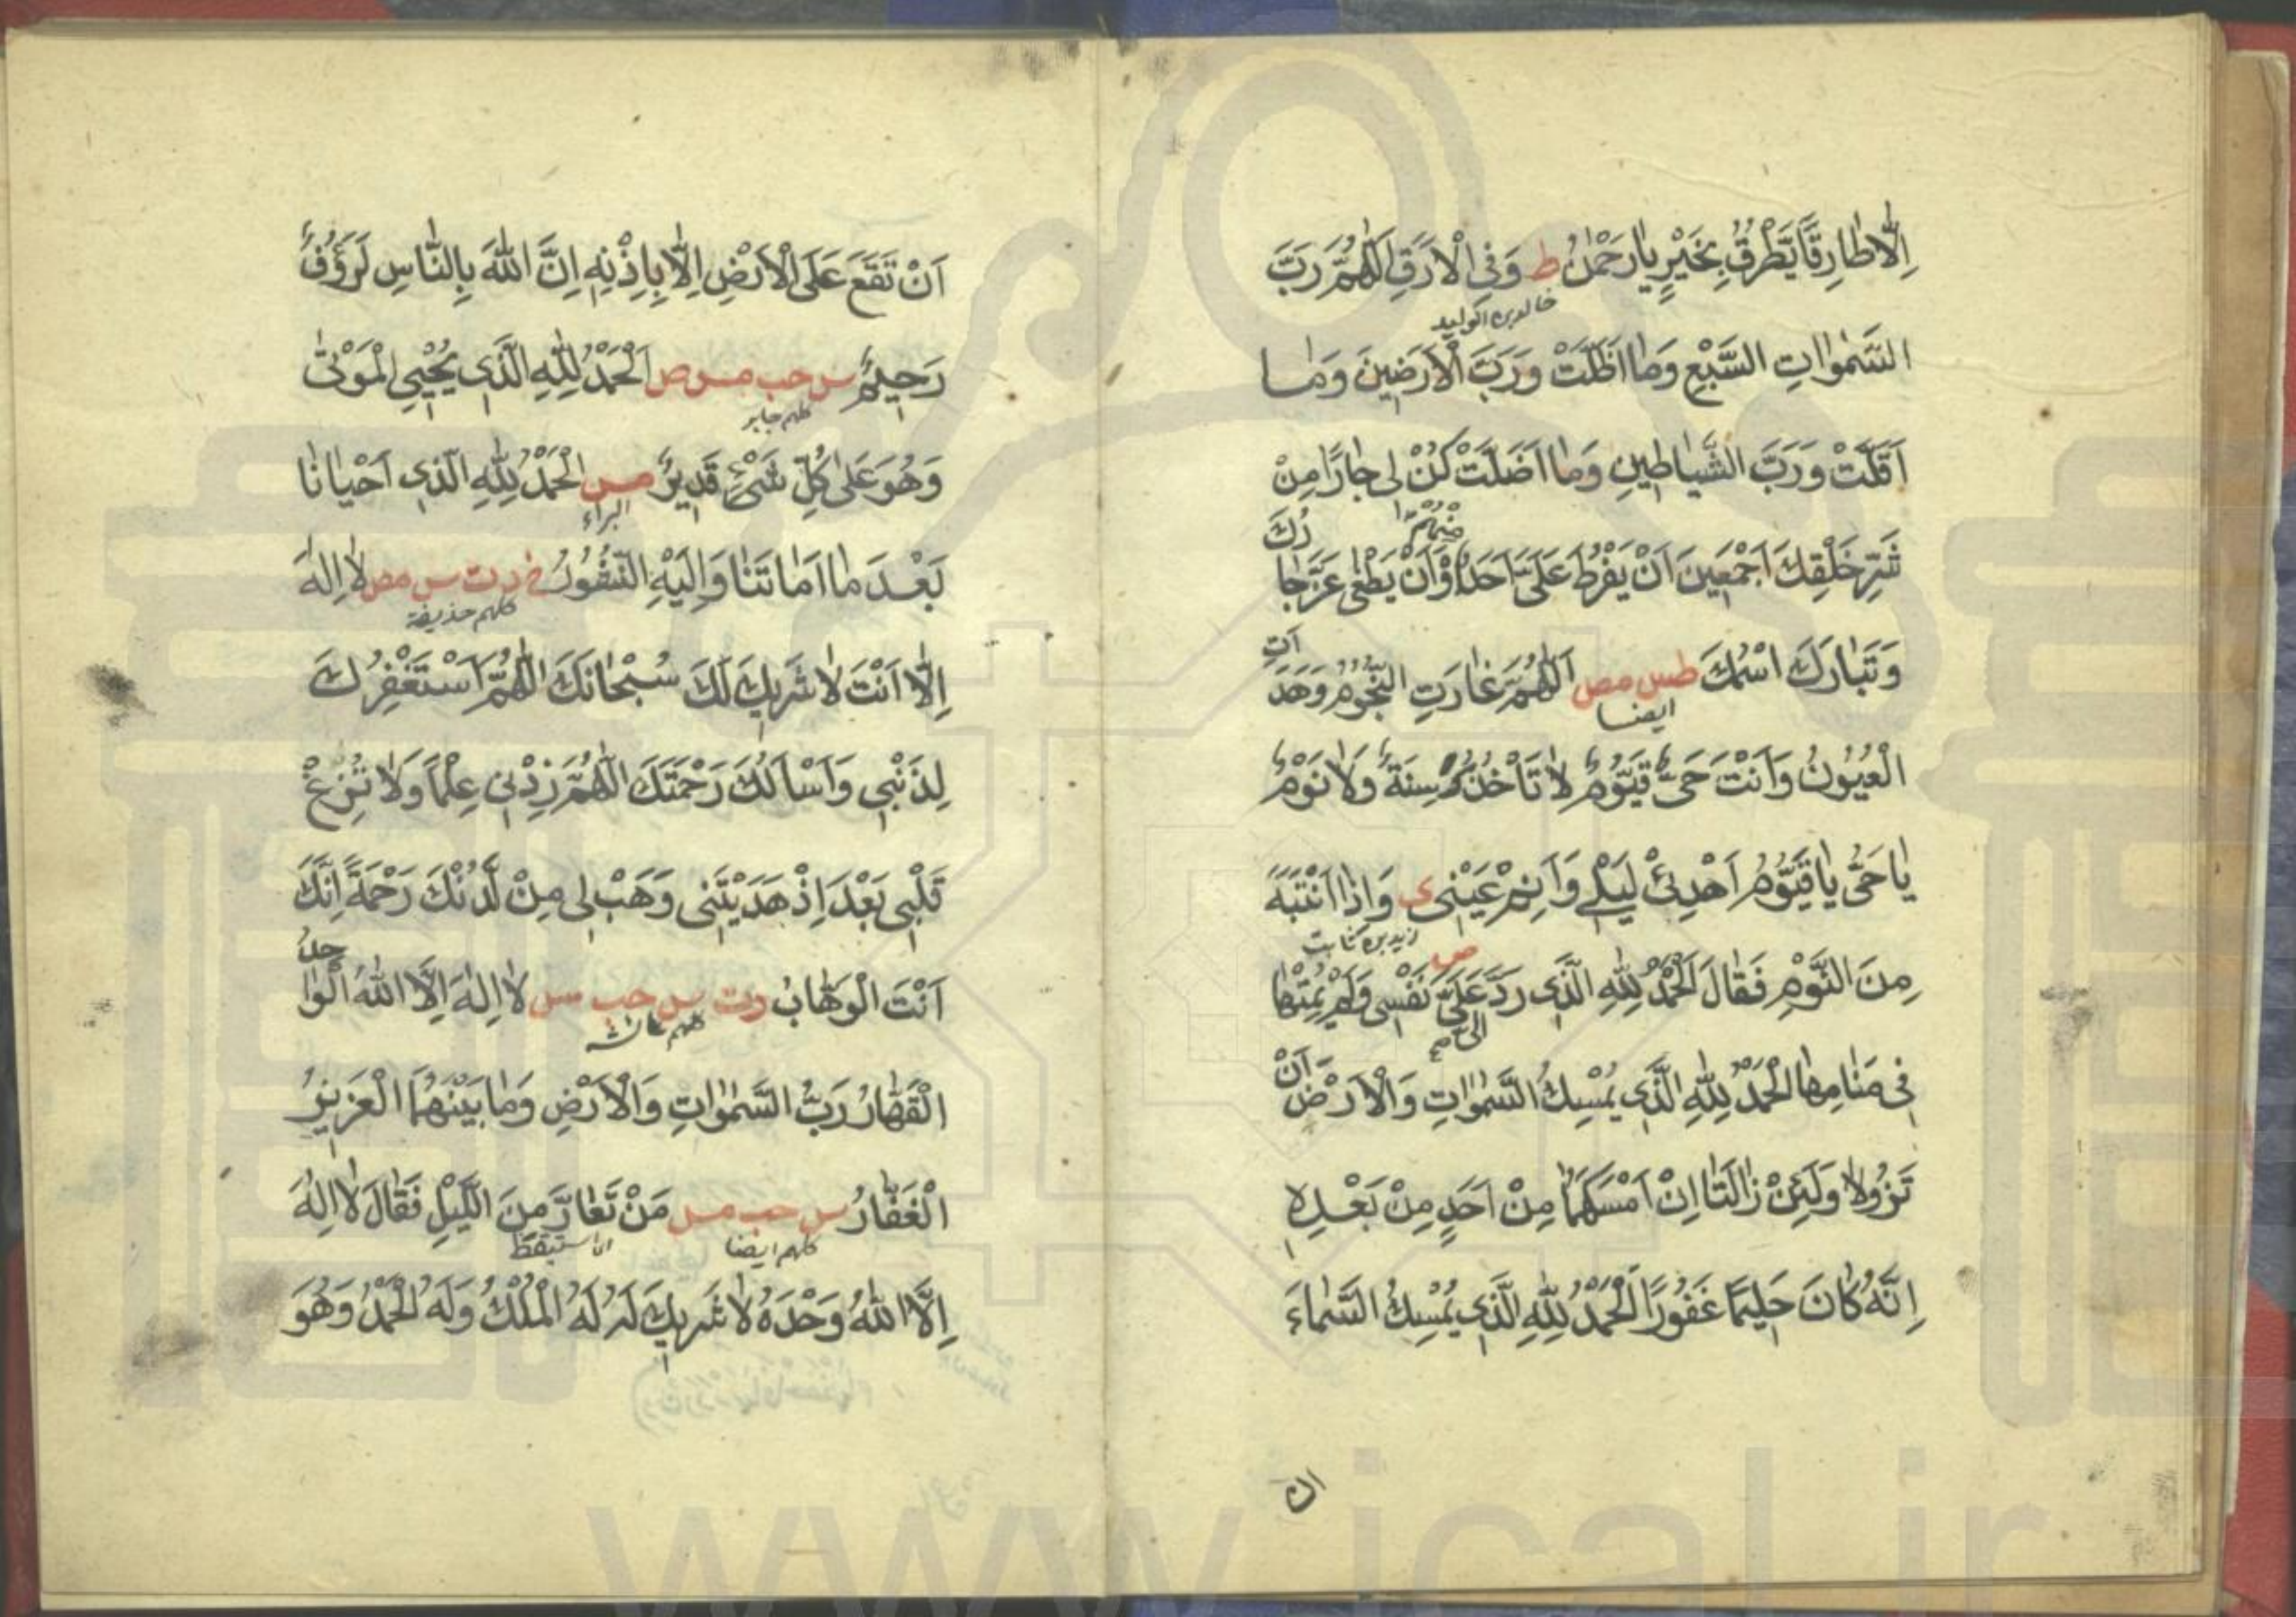 اِلَّا طَارِقًا يَطْرُقُ بِخَيْرٍ يَا رَحْمٰنُ ط وَفِى الْاَرَقِ اَللّٰهُمَّ رَبَّ
خالد بن الوليد
السَّمٰوَاتِ السَّبْعِ وَمَا اَظَلَّتْ وَرَبَّ الْاَرَضِينَ وَمَا
اَقَلَّتْ وَرَبَّ الشَّيَاطِينِ وَمَا اَضَلَّتْ كُنْ لِى جَارًا مِنْ
شَرِّ خَلْقِكَ اَجْمَعِينَ اَنْ يَفْرُطَ عَلَىَّ اَحَدٌ مِنْهُمْ اَوْ اَنْ يَطْغٰى عَزَّ جَارُكَ
وَتَبَارَكَ اسْمُكَ طس مص اَللّٰهُمَّ غَارَتِ النُّجُومُ وَهَدَاَتِ
ايضا
الْعُيُونُ وَاَنْتَ حَىٌّ قَيُّومٌ لَا تَاْخُذُكَ سِنَةٌ وَلَا نَوْمٌ
يَا حَىُّ يَا قَيُّومُ اَهْدِئْ لَيْلِى وَاَنِمْ عَيْنِى ى وَاِذَا انْتَبَهَ
زيد بن ثابت
مِنَ النَّوْمِ فَقَالَ اَلْحَمْدُ لِلّٰهِ الَّذِى رَدَّ عَلَىَّ نَفْسِى وَلَمْ يُمِتْهَا
فِى مَنَامِهَا اَلْحَمْدُ لِلّٰهِ الَّذِى يُمْسِكُ السَّمٰوَاتِ وَالْاَرْضَ اَنْ
تَزُولَا وَلَئِنْ زَالَتَا اِنْ اَمْسَكَهُمَا مِنْ اَحَدٍ مِنْ بَعْدِهِ
اِنَّهُ كَانَ حَلِيمًا غَفُورًا اَلْحَمْدُ لِلّٰهِ الَّذِى يُمْسِكُ السَّمَاءَ
ان
اَنْ تَقَعَ عَلَى الْاَرْضِ اِلَّا بِاِذْنِهِ اِنَّ اللّٰهَ بِالنَّاسِ لَرَؤُفٌ
رَحِيمٌ س حب مس ص اَلْحَمْدُ لِلّٰهِ الَّذِى يُحْيِى الْمَوْتٰى
كلهم جابر
وَهُوَ عَلٰى كُلِّ شَىْءٍ قَدِيرٌ مس اَلْحَمْدُ لِلّٰهِ الَّذِى اَحْيَانَا
البراء
بَعْدَ مَا اَمَاتَنَا وَاِلَيْهِ النُّشُورُ خ د ت س مص لَا اِلٰهَ
كلهم حذيفة
اِلَّا اَنْتَ لَا شَرِيكَ لَكَ سُبْحَانَكَ اللّٰهُمَّ اَسْتَغْفِرُكَ
لِذَنْبِى وَاَسْاَلُكَ رَحْمَتَكَ اللّٰهُمَّ زِدْنِى عِلْمًا وَلَا تُزِغْ
قَلْبِى بَعْدَ اِذْ هَدَيْتَنِى وَهَبْ لِى مِنْ لَدُنْكَ رَحْمَةً اِنَّكَ
اَنْتَ الْوَهَّابُ د ت س حب مس لَا اِلٰهَ اِلَّا اللّٰهُ الْوَاحِدُ
كلهم عائشة
الْقَهَّارُ رَبُّ السَّمٰوَاتِ وَالْاَرْضِ وَمَا بَيْنَهُمَا الْعَزِيزُ
الْغَفَّارُ س حب مس مَنْ تَعَارَّ مِنَ اللَّيْلِ فَقَالَ لَا اِلٰهَ
كلهم ايضا استيقظ
اِلَّا اللّٰهُ وَحْدَهُ لَا شَرِيكَ لَهُ لَهُ الْمُلْكُ وَلَهُ الْحَمْدُ وَهُوَ
www.ical.ir